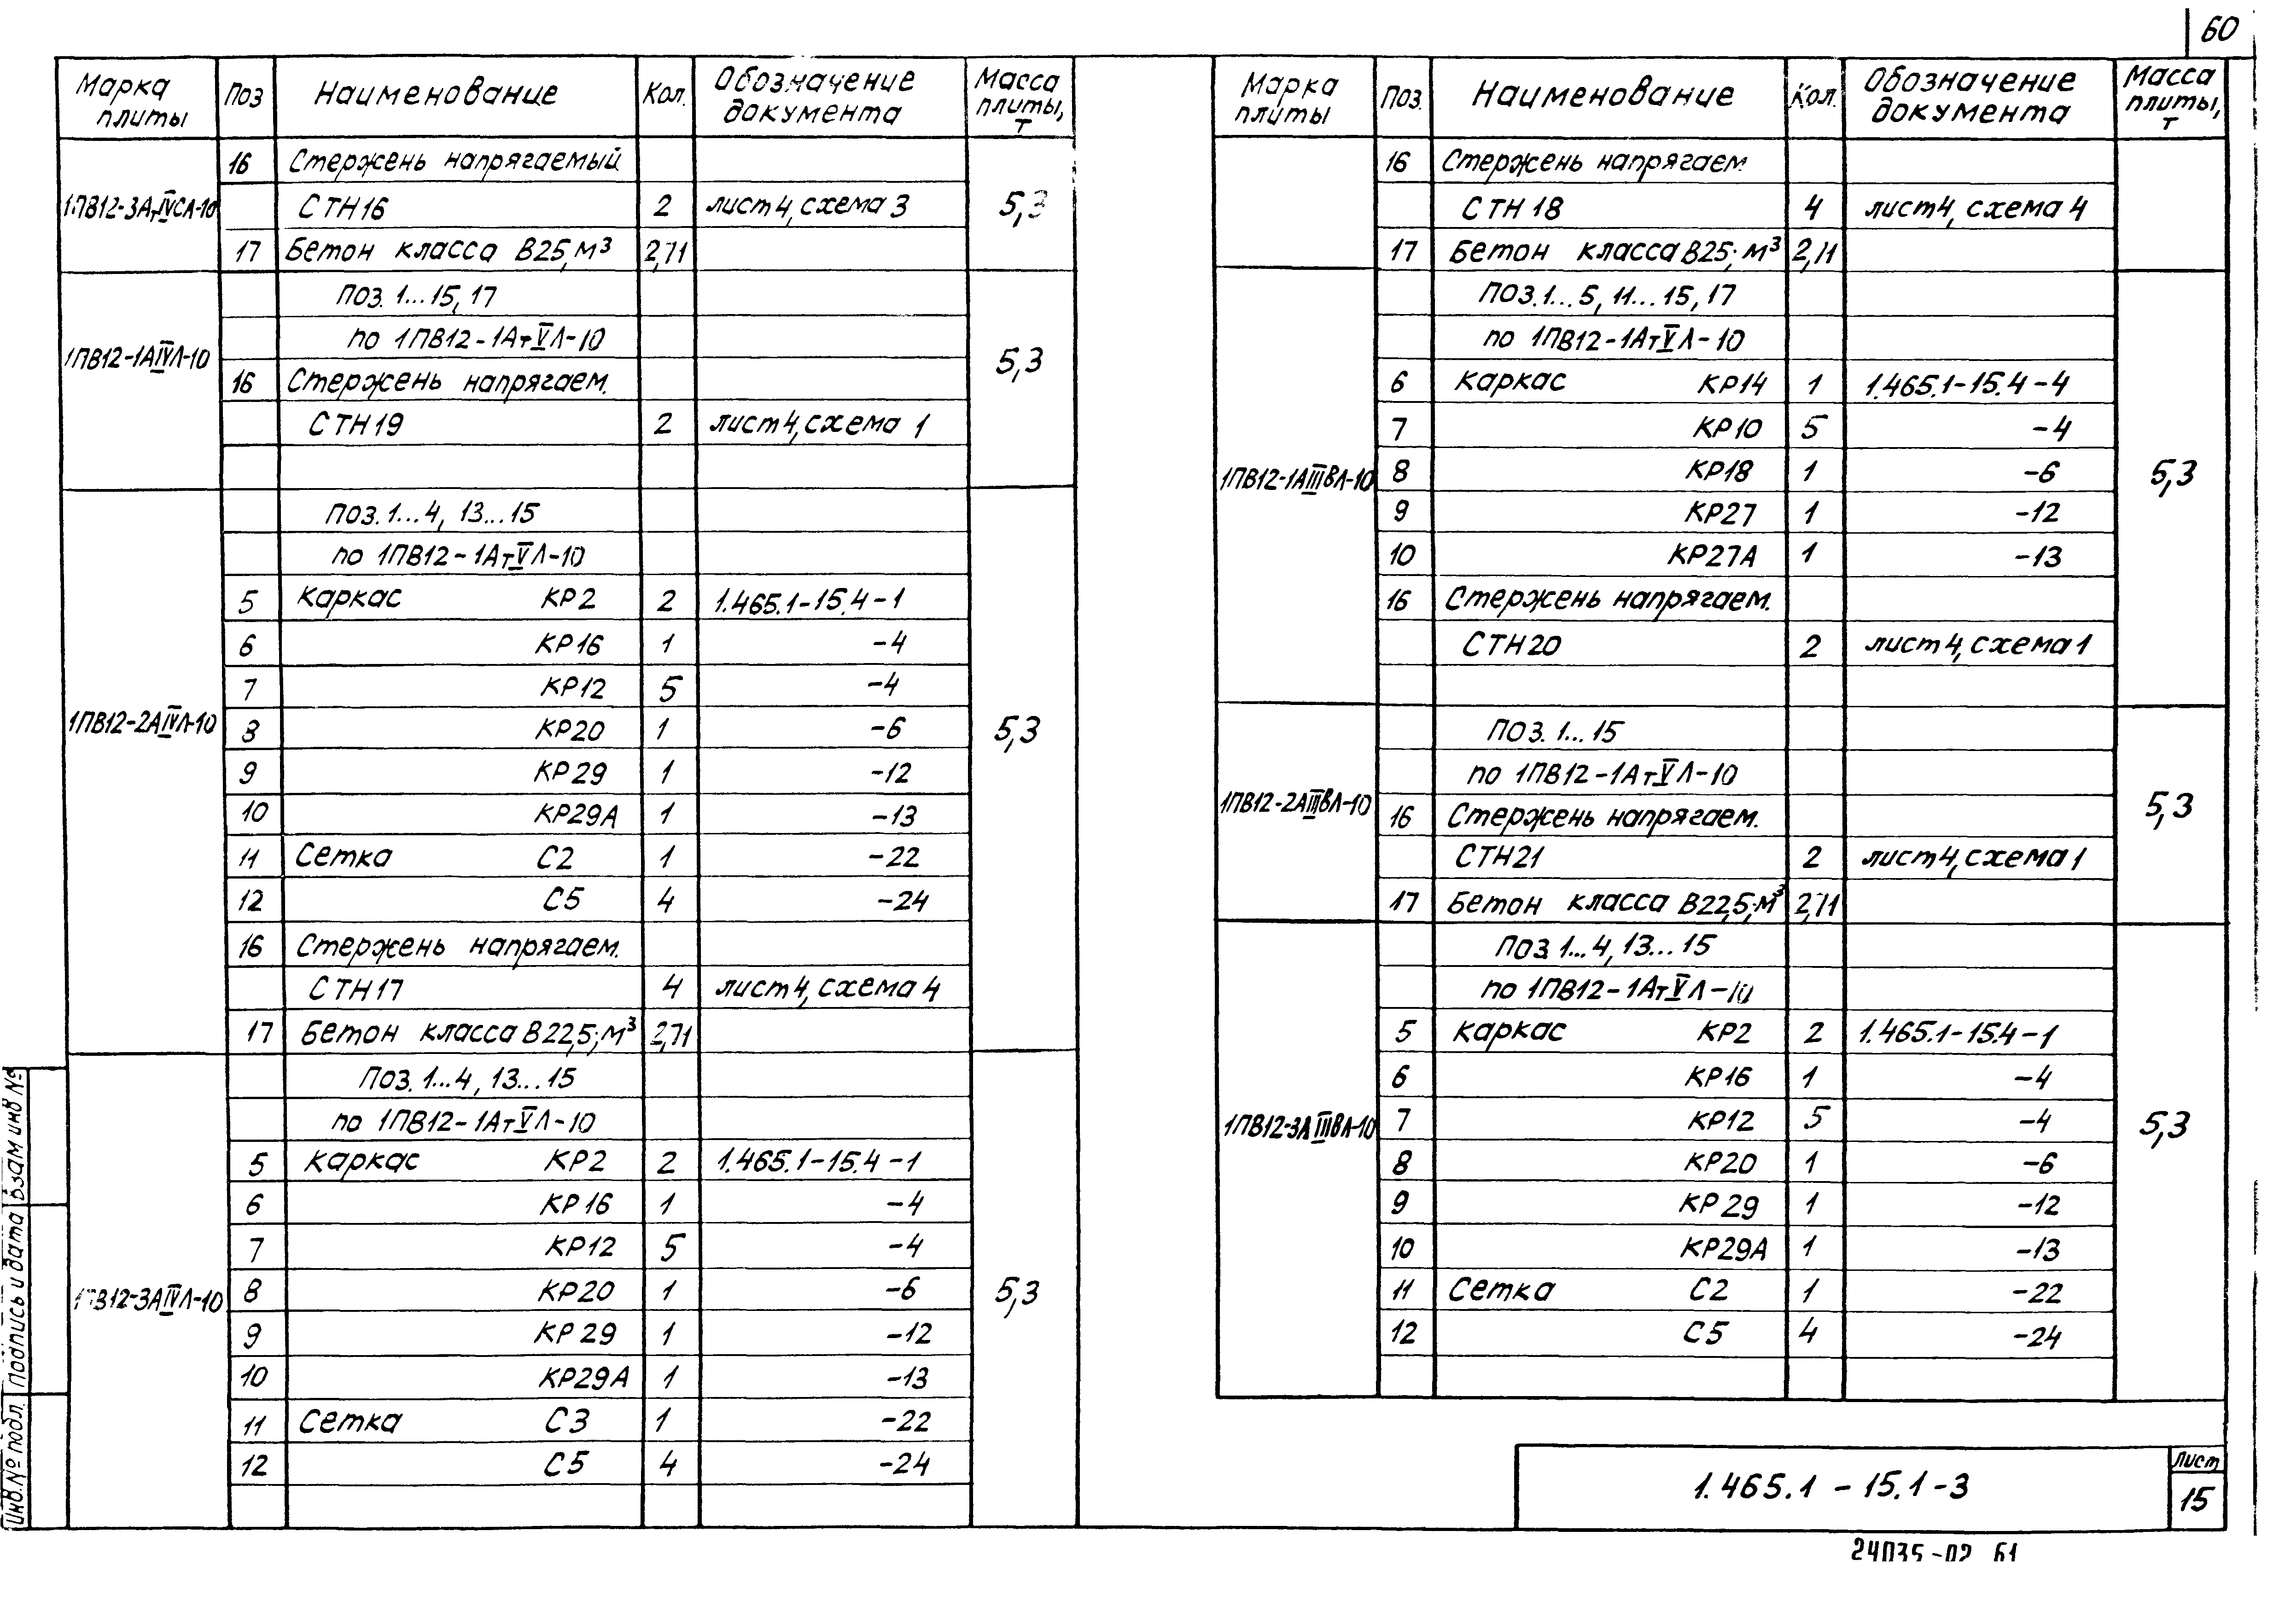 60
Марка плиты | Поз | Наименование | Кол. | Обозначение документа | Масса плиты, т
1ПВ12-3АтIVСЛ-10 | 16 | Стержень напрягаемый | | | 5,3
СТН16 | 2 | лист 4, схема 3
17 | Бетон класса В25, м³ | 2,11
1ПВ12-1АIVЛ-10 | | Поз. 1...15, 17 | | | 5,3
по 1ПВ12-1АтVЛ-10
16 | Стержень напрягаем.
СТН19 | 2 | лист 4, схема 1
1ПВ12-2АIVЛ-10 | | Поз. 1...4, 13...15 | | | 5,3
по 1ПВ12-1АтVЛ-10
5 | Каркас КР2 | 2 | 1.465.1-15.4-1
6 | КР16 | 1 | -4
7 | КР12 | 5 | -4
8 | КР20 | 1 | -6
9 | КР29 | 1 | -12
10 | КР29А | 1 | -13
11 | Сетка С2 | 1 | -22
12 | С5 | 4 | -24
16 | Стержень напрягаем.
СТН17 | 4 | лист 4, схема 4
17 | Бетон класса В22,5; м³ | 2,11
1ПВ12-3АIVЛ-10 | | Поз. 1...4, 13...15 | | | 5,3
по 1ПВ12-1АтVЛ-10
5 | Каркас КР2 | 2 | 1.465.1-15.4-1
6 | КР16 | 1 | -4
7 | КР12 | 5 | -4
8 | КР20 | 1 | -6
9 | КР29 | 1 | -12
10 | КР29А | 1 | -13
11 | Сетка С3 | 1 | -22
12 | С5 | 4 | -24
Марка плиты | Поз. | Наименование | Кол. | Обозначение документа | Масса плиты, т
16 | Стержень напрягаем
СТН18 | 4 | лист 4, схема 4
17 | Бетон класса В25; м³ | 2,11
1ПВ12-1АIIIвЛ-10 | | Поз. 1...5, 11...15, 17 | | | 5,3
по 1ПВ12-1АтVЛ-10
6 | Каркас КР14 | 1 | 1.465.1-15.4-4
7 | КР10 | 5 | -4
8 | КР18 | 1 | -6
9 | КР27 | 1 | -12
10 | КР27А | 1 | -13
16 | Стержень напрягаем.
СТН20 | 2 | лист 4, схема 1
1ПВ12-2АIIIвЛ-10 | | Поз. 1...15 | | | 5,3
по 1ПВ12-1АтVЛ-10
16 | Стержень напрягаем.
СТН21 | 2 | лист 4, схема 1
17 | Бетон класса В22,5; м³ | 2,11
1ПВ12-3АIIIвЛ-10 | | Поз 1...4, 13...15 | | | 5,3
по 1ПВ12-1АтVЛ-10
5 | Каркас КР2 | 2 | 1.465.1-15.4-1
6 | КР16 | 1 | -4
7 | КР12 | 5 | -4
8 | КР20 | 1 | -6
9 | КР29 | 1 | -12
10 | КР29А | 1 | -13
11 | Сетка С2 | 1 | -22
12 | С5 | 4 | -24
Инв.№ подл. | Подпись и дата | Взам инв №
1.465.1-15.1-3
Лист
15
24035-02 61